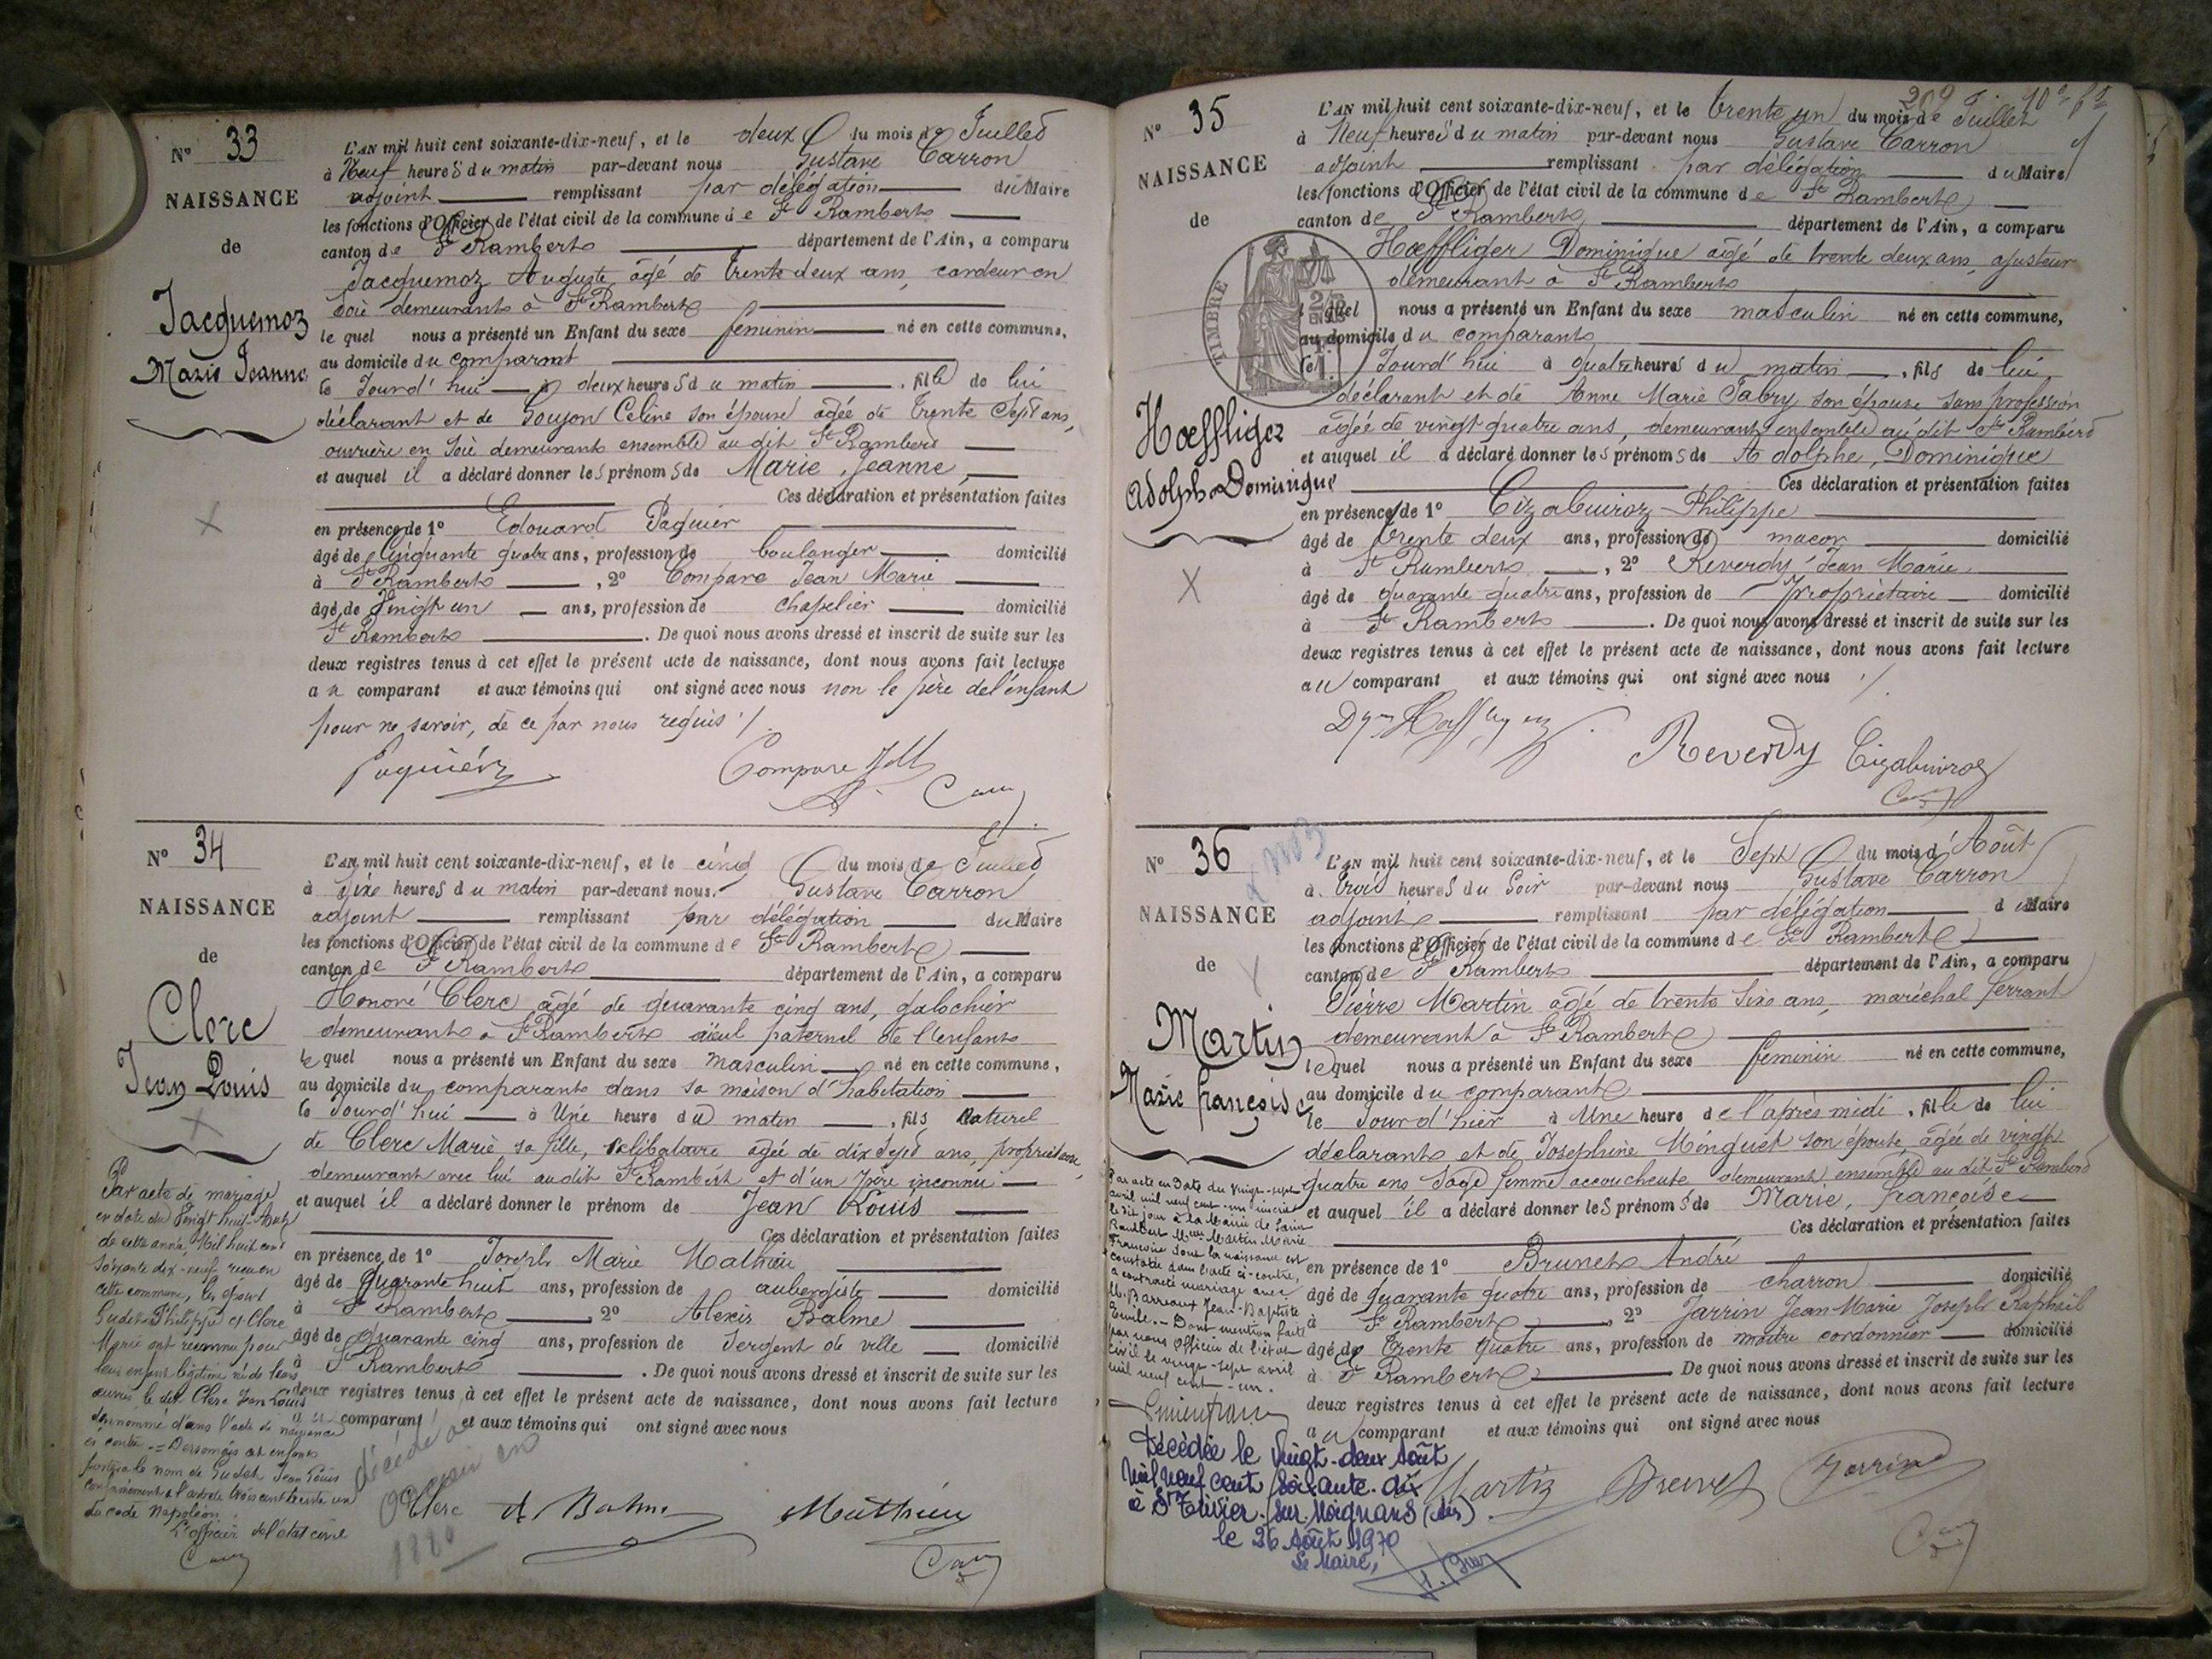 N° 33
NAISSANCE
de
Jacquemoz
Marie Jeanne
L'AN mil huit cent soixante-dix-neuf, et le deux du mois de Juillet
à Neuf heures du matin par-devant nous Gustave Carron
adjoint remplissant par délégation du Maire
les fonctions d'Officier de l'état civil de la commune de St Rambert
canton de St Rambert département de l'Ain, a comparu
Jacquemoz Auguste âgé de trente deux ans, cardeur en
soie demeurant à St Rambert
le quel nous a présenté un Enfant du sexe feminin né en cette commune,
au domicile du comparant
le Jourd'hui à deux heures du matin, fille de lui
déclarant et de Goujon Celine son épouse âgée de trente sept ans,
ouvrière en soie demeurant ensemble au dit St Rambert
et auquel il a déclaré donner les prénoms de Marie, Jeanne,
Ces déclaration et présentation faites
en présence de 1° Edouard Paquier
âgé de cinquante quatre ans, profession de boulanger domicilié
à St Rambert, 2° Compare Jean Marie
âgé de Vingt un ans, profession de chapelier domicilié
St Rambert. De quoi nous avons dressé et inscrit de suite sur les
deux registres tenus à cet effet le présent acte de naissance, dont nous avons fait lecture
au comparant et aux témoins qui ont signé avec nous non le père de l'enfant
pour ne savoir, de ce par nous requis ./.
Paquier Compare JM
N° 34
NAISSANCE
de
Clerc
Jean Louis
L'AN mil huit cent soixante-dix-neuf, et le cinq du mois de Juillet
à dix heures du matin par-devant nous Gustave Carron
adjoint remplissant par délégation du Maire
les fonctions d'Officier de l'état civil de la commune de St Rambert
canton de St Rambert département de l'Ain, a comparu
Honoré Clerc âgé de quarante cinq ans, galochier
demeurant à St Rambert aïeul paternel de l'enfant
le quel nous a présenté un Enfant du sexe masculin né en cette commune,
au domicile du comparant dans sa maison d'habitation
le Jourd'hui à Une heure du matin, fils naturel
de Clerc Marie, sa fille, célibataire agée de dix sept ans,
demeurant avec lui au dit St Rambert et d'un père inconnu
et auquel il a déclaré donner le prénom de Jean Louis
Ces déclaration et présentation faites
en présence de 1° Joseph Marie Mathieu
âgé de Quarante huit ans, profession de aubergiste domicilié
à St Rambert 2° Alexis Balme
âgé de quarante cinq ans, profession de Sergent de ville
à St Rambert. De quoi nous avons dressé et inscrit de suite sur les
deux registres tenus à cet effet le présent acte de naissance, dont nous avons fait lecture
au comparant et aux témoins qui ont signé avec nous
Par acte de mariage
en date du Vingt huit Août
de cette année, Mil huit cent
soixante dix-neuf reçu en
cette commune, les époux
Gudet Philippe et Clerc
Marie ont reconnu pour
leur enfant légitime né de leurs
œuvres, le dit Clerc Jean Louis
dénommé dans l'acte de naissance
ci contre. = Désormais cet enfant
portera le nom de Gudet Jean Louis
conformément à l'article trois cent trente un
du code Napoléon.
L'officier de l'état civil
décédé
1880
Clerc A. Balme Mathieu
209
N° 35
NAISSANCE
de
Hoeffliger
Adolphe Dominique
TIMBRE
L'AN mil huit cent soixante-dix-neuf, et le trente un du mois de Juillet
à Neuf heures du matin par-devant nous Gustave Carron
adjoint remplissant par délégation du Maire
les fonctions d'Officier de l'état civil de la commune de St Rambert
canton de St Rambert département de l'Ain, a comparu
Hoeffliger Dominique âgé de trente deux ans, ajusteur
demeurant à St Rambert
lequel nous a présenté un Enfant du sexe masculin né en cette commune,
au domicile du comparant
le Jourd'hui à quatre heures du matin, fils de lui
déclarant et de Anne Marie Fabry son épouse sans profession
âgée de vingt quatre ans, demeurant ensemble au dit St Rambert
et auquel il a déclaré donner les prénoms de Adolphe, Dominique
Ces déclaration et présentation faites
en présence de 1° Cizabuiroz Philippe
âgé de trente deux ans, profession de maçon domicilié
à St Rambert, 2° Reverdy Jean Marie
âgé de quarante quatre ans, profession de Propriétaire domicilié
à St Rambert. De quoi nous avons dressé et inscrit de suite sur les
deux registres tenus à cet effet le présent acte de naissance, dont nous avons fait lecture
au comparant et aux témoins qui ont signé avec nous ./.
Reverdy Cizabuiroz
N° 36
NAISSANCE
de
Martin
Marie françoise
L'AN mil huit cent soixante-dix-neuf, et le Sept du mois d'Août
à trois heures du Soir par-devant nous Gustave Carron
adjoint remplissant par délégation du Maire
les fonctions d'Officier de l'état civil de la commune de St Rambert
canton de St Rambert département de l'Ain, a comparu
Pierre Martin âgé de trente Six ans, maréchal ferrant
demeurant à St Rambert
lequel nous a présenté un Enfant du sexe feminin né en cette commune,
au domicile du comparant
le Jour d'hier à Une heure de l'après midi, fille de lui
déclarant et de Josephine Minguet son épouse, âgée de vingt
quatre ans Sage femme accoucheuse demeurant ensemble au dit St Rambert
et auquel il a déclaré donner les prénoms de Marie, françoise
Ces déclaration et présentation faites
en présence de 1° Brunet André
âgé de quarante quatre ans, profession de charron domicilié
à St Rambert, 2° Jarrin Jean-Marie Joseph Raphaël
âgé de trente quatre ans, profession de maître cordonnier domicilié
à St Rambert De quoi nous avons dressé et inscrit de suite sur les
deux registres tenus à cet effet le présent acte de naissance, dont nous avons fait lecture
au comparant et aux témoins qui ont signé avec nous
Par acte en date du Vingt-sept
avril mil neuf cent-un inscrit
le dit jour à la Mairie de Saint
Rambert Melle Martin Marie
Françoise dont la naissance est
constatée dans l'acte ci-contre,
a contracté mariage avec
M. Barreaux Jean-Baptiste
Emile. - Dont mention faite
par nous Officier de l'état
civil le vingt-sept avril
mil neuf cent-un.
Décédée le Vingt-deux Août
Mil neuf cent soixante-dix
à St Trivier-sur-Moignans (Ain).
le 26 Août 1970
Le Maire,
Martin Brunet Jarrin